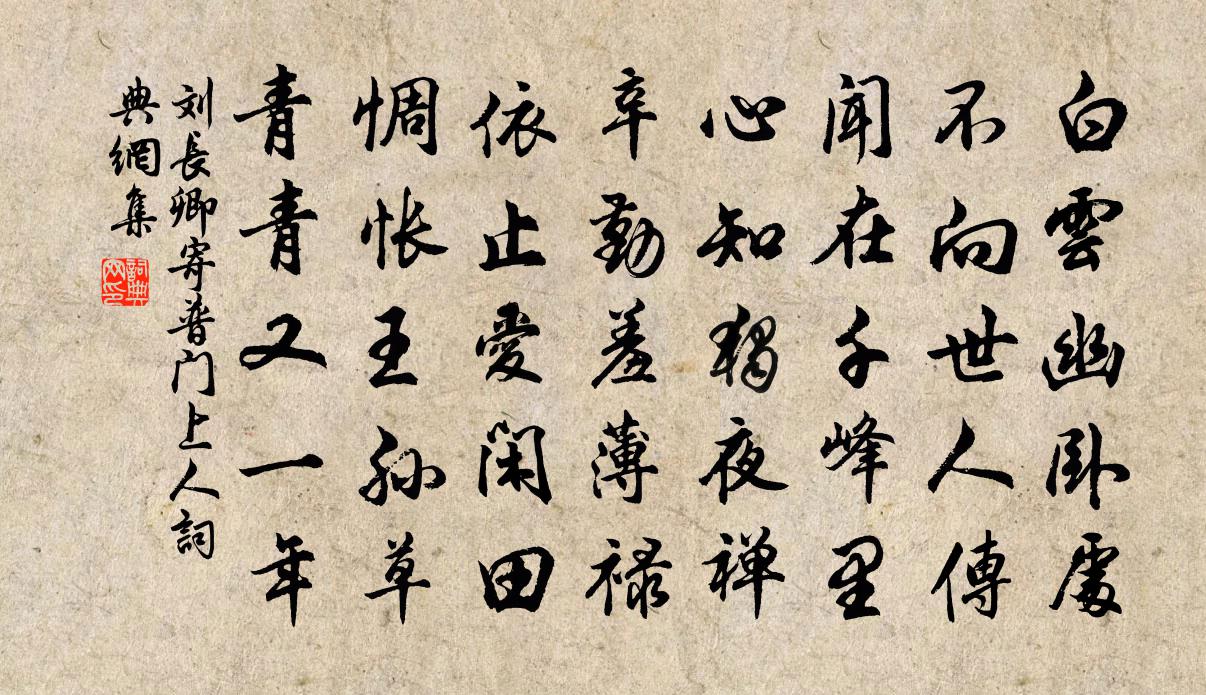 白雲幽卧處
不向世人傳
聞在千峰里
心知獨夜禅
辛勤羞薄禄
依止愛閑田
惆怅王孙草
青青又一年
刘長卿寄普门上人詞
典網集
詞典
网印